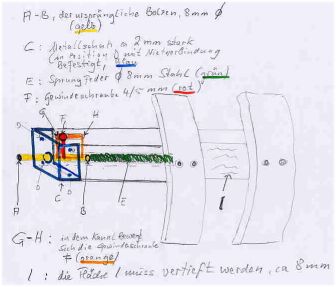 A-B, der ursprüngliche Bolzen, 8mm Ø
(gelb)
C: Metallschutz ca 2mm stark
(in Position D mit Nietverbindung
Befestigt, blau
E: Sprungfeder Ø 8mm Stahl (grün)
F: Gewindeschraube 4/5 mm (rot)
G F H
D
D
D
A C B E
1
G-H: in dem Kanal bewegt
sich die Gewindeschraube
F (orange)
1: die Fläche 1 muss vertieft werden, ca 8mm